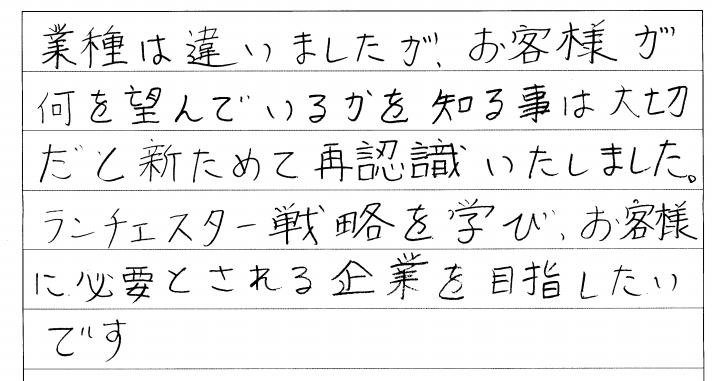 業種は違いましたが、お客様が
何を望んでいるかを知る事は大切
だと新ためて再認識いたしました。
ランチェスター戦略を学び、お客様
に必要とされる企業を目指したい
です